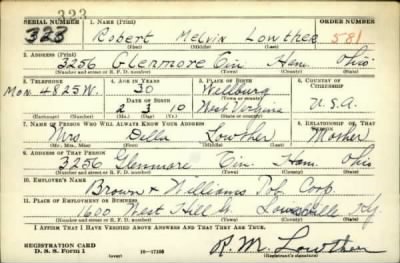 323
SERIAL NUMBER 1. NAME (Print) ORDER NUMBER
323 Robert Melvin Lowther 581
(First) (Middle) (Last)
2. ADDRESS (Print)
3256 Glenmore Cin. Ham. Ohio
(Number and street or R. F. D. number) (Town) (County) (State)
3. TELEPHONE 4. AGE IN YEARS 5. PLACE OF BIRTH 6. COUNTRY OF CITIZENSHIP
Mon. 4825W. 30 Wellburg
DATE OF BIRTH (Town or county)
2 3 10 West Virginia U.S.A.
(Exchange) (Number) (Mo.) (Day) (Yr.) (State or country)
7. NAME OF PERSON WHO WILL ALWAYS KNOW YOUR ADDRESS 8. RELATIONSHIP OF THAT PERSON
Mrs. Della Lowther Mother
(Mr., Mrs., Miss) (First) (Middle) (Last)
9. ADDRESS OF THAT PERSON
3256 Glenmore Cin. Ham. Ohio
(Number and street or R. F. D. number) (Town) (County) (State)
10. EMPLOYER'S NAME
Brown & Williams Tob. Corp.
11. PLACE OF EMPLOYMENT OR BUSINESS
1600 West Hill St Louisville Ky.
(Number and street or R. F. D. number) (Town) (County) (State)
I AFFIRM THAT I HAVE VERIFIED ABOVE ANSWERS AND THAT THEY ARE TRUE.
REGISTRATION CARD
D. S. S. Form 1 (over) 16—17105 R. M. Lowther
(Registrant's signature)